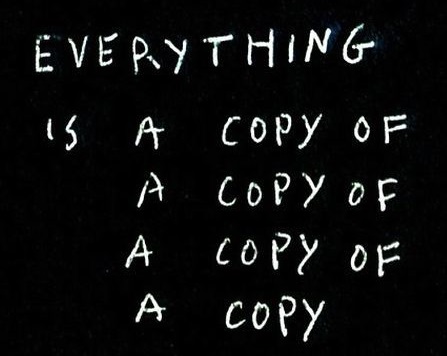 EVERYTHING
IS A COPY OF
A COPY OF
A COPY OF
A COPY